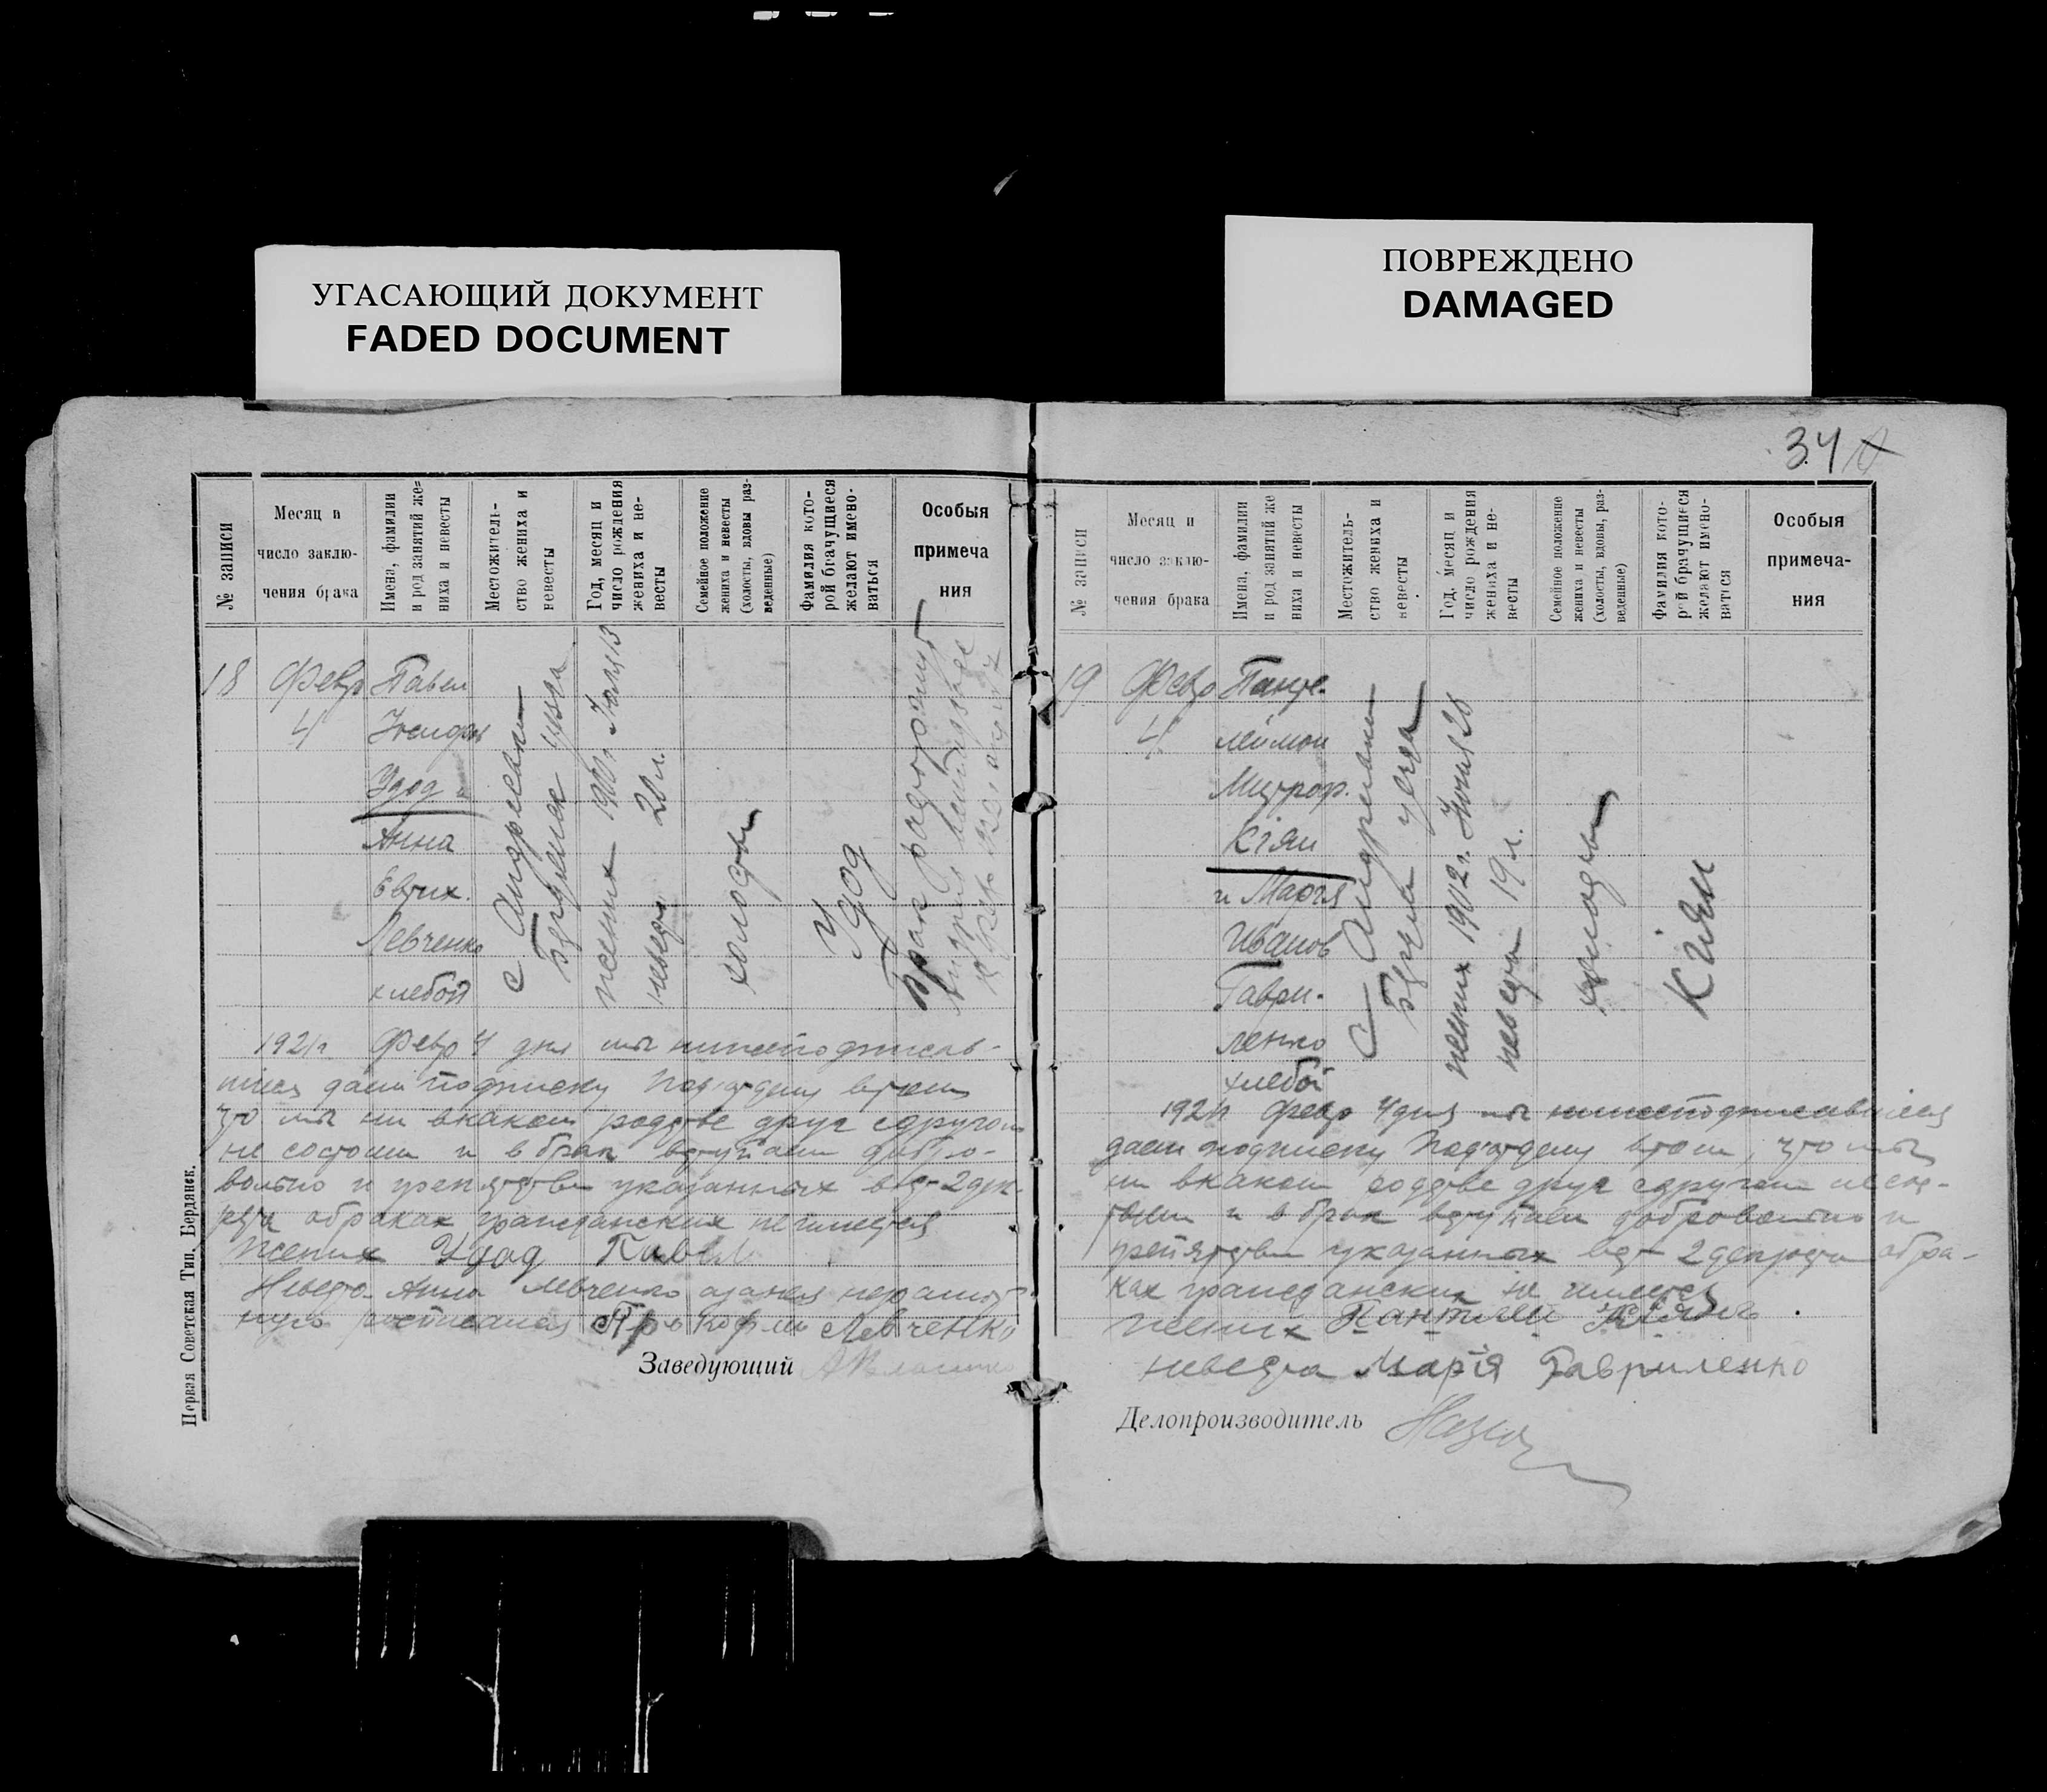 УГАСАЮЩИЙ ДОКУМЕНТ
FADED DOCUMENT
ПОВРЕЖДЕНО
DAMAGED
34
№ записи
Месяц и
число заклю-
чения брака
Имена, фамилии
и род занятий же-
ниха и невесты
Местожитель-
ство жениха и
невесты
Год, месяц и
число рождения
жениха и не-
весты
Семейное положение
жениха и невесты
(холосты, вдовы раз-
веденные)
Фамилия кото-
рой брачущиеся
желают имено-
ваться
Особыя
примеча
ния
18
Февр
4
Павел
Удод
Анна
Евтих.
Левченко
хлебоп
с Андреевки
жених 1900 г.
невеста 20 л.
холосты
Удод
Брак расторгнут
1921 г Февр 4 дня мы нижеподписав-
шися даем подписку
что мы ни в каком родстве друг с другом
не состоим и в брак вступаем добро-
вольно и препятствия указанных в ст 2 дек-
рета о браках гражданских не имеется
Жених Удод Павел
Невеста Анна Левченко а за нея неграмот-
ную росписался Прокофий Левченко
Заведующий
Первая Советская Тип. Бердянск.
№ записи
Месяц и
число заклю-
чения брака
Имена, фамилии
и род занятий же
ниха и невесты
Местожитель-
ство жениха и
невесты
Год, месяц и
число рождения
жениха и не-
весты
Семейное положение
жениха и невесты
(холосты, вдовы, раз-
веденные)
Фамилия кото-
рой брачущиеся
желают имено-
ваться
Особыя
примеча-
ния
19
Февр
4
Панте-
леймон
Митроф.
Кіян
и Марія
Иванов
Гаври-
ленко
хлебоп
с Андреевки
жених 1902 г.
невеста 19 л.
холосты
Кіян
1921 г Февр 4 дня мы нижеподписавшися
даем подписку в том, что мы
ни в каком родстве друг с другом не сос-
тоим и в брак вступаем добровольно и
препятствия указанных в ст 2 декрета о бра-
ках гражданских не имеется
жених Кіян
невеста Марія Гавриленко
Делопроизводитель